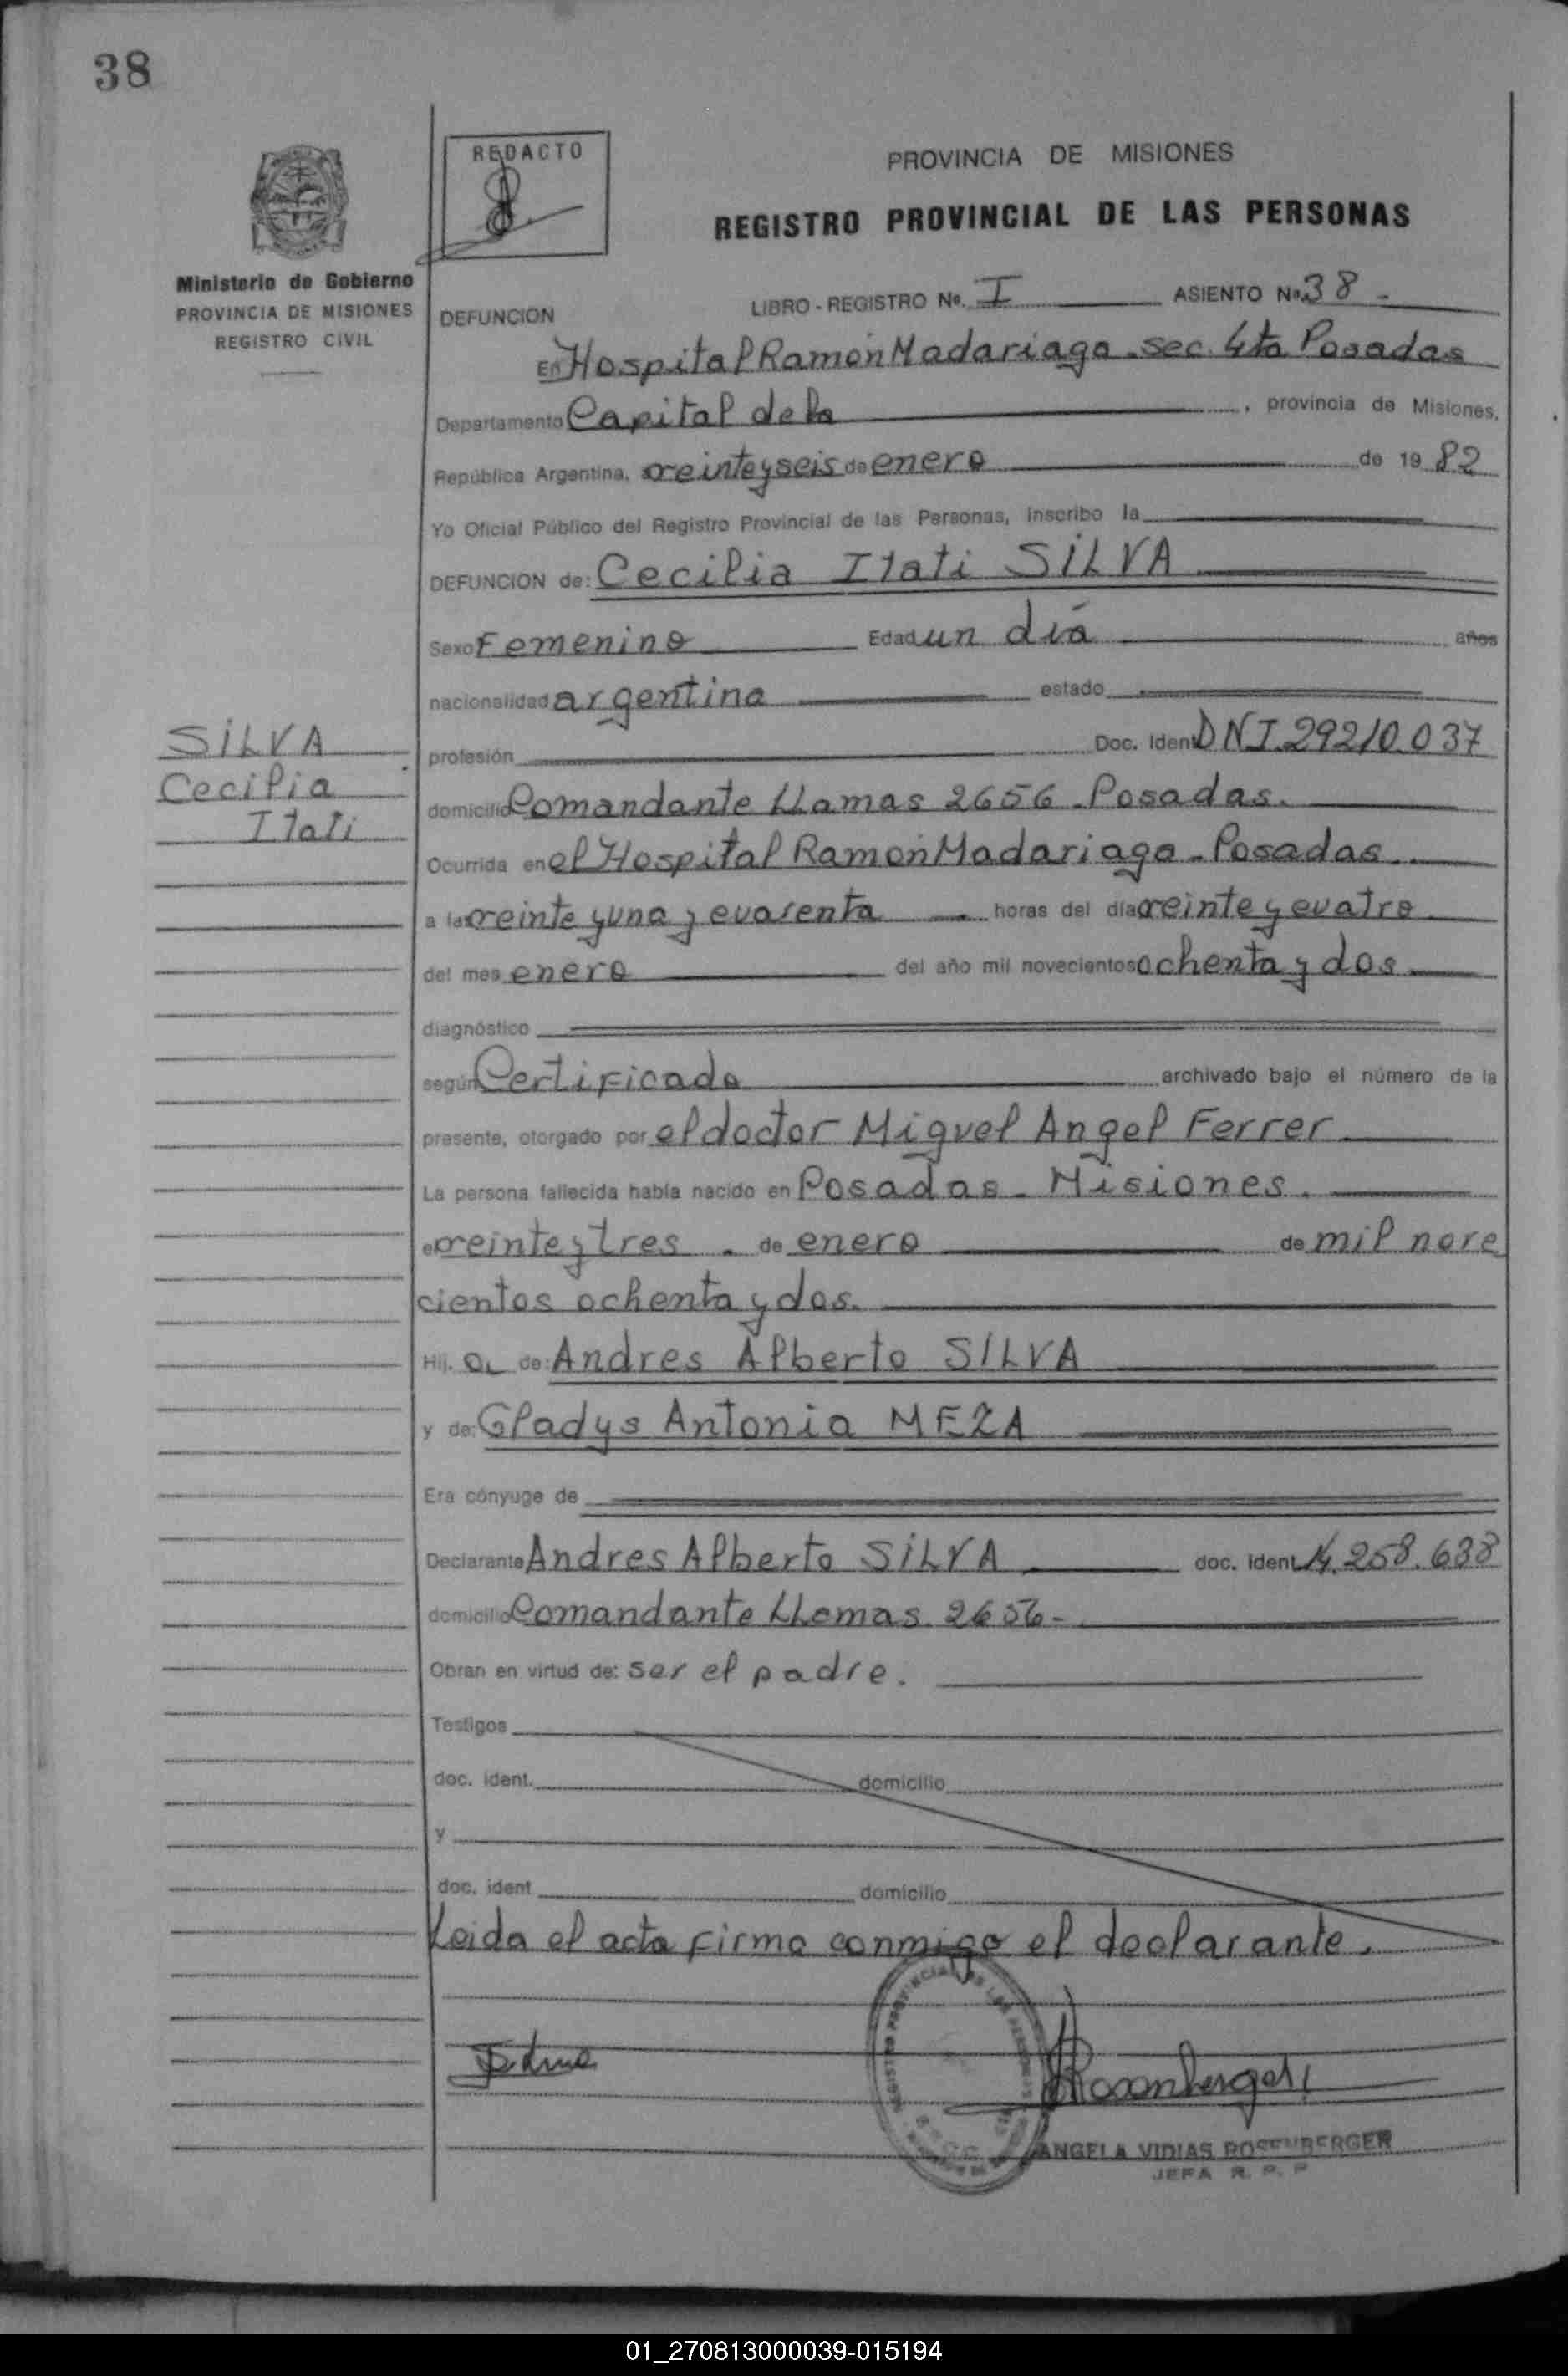 38
REDACTO
PROVINCIA DE MISIONES
REGISTRO PROVINCIAL DE LAS PERSONAS
Ministerio de Gobierno
PROVINCIA DE MISIONES
REGISTRO CIVIL
DEFUNCION LIBRO - REGISTRO Nº. I ASIENTO Nº 38 -
En Hospital Ramón Madariaga - sec. 4ta Posadas
Departamento Capital de la , provincia de Misiones,
República Argentina, a veinte y seis de enero de 19 82
Yo Oficial Público del Registro Provincial de las Personas, inscribo la
DEFUNCION de: Cecilia Itati SILVA
Sexo Femenino Edad un día años
nacionalidad argentina estado
profesión Doc. Ident. DNI 29210.037
domicilio Comandante LLamas 2656 - Posadas.
SILVA
Cecilia
Itati
Ocurrida en el Hospital Ramón Madariaga - Posadas.
a las veinte y una y cuarenta horas del día veinte y cuatro
del mes enero del año mil novecientos ochenta y dos
diagnóstico
según Certificado archivado bajo el número de la
presente, otorgado por el doctor Miguel Angel Ferrer
La persona fallecida había nacido en Posadas - Misiones.
el veinte y tres. de enero de mil nove
cientos ochenta y dos.
Hij. a de: Andres Alberto SILVA
y de: Gladys Antonia MEZA
Era cónyuge de
Declarante Andres Alberto SILVA doc. ident. 14.258.638
domicilio Comandante LLamas 2656 -
Obran en virtud de: ser el padre.
Testigos
doc. ident. domicilio
y
doc. ident domicilio
Leida el acta firma conmigo el declarante.
ANGELA VIDIAS ROSENBERGER
JEFA R. P. P
01_270813000039-015194